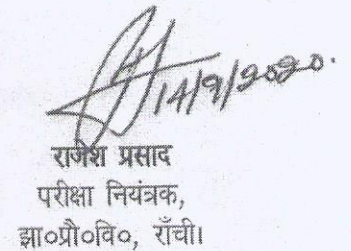 14/9/2020.
राजेश प्रसाद
परीक्षा नियंत्रक,
झा०प्रौ०वि०, राँची।